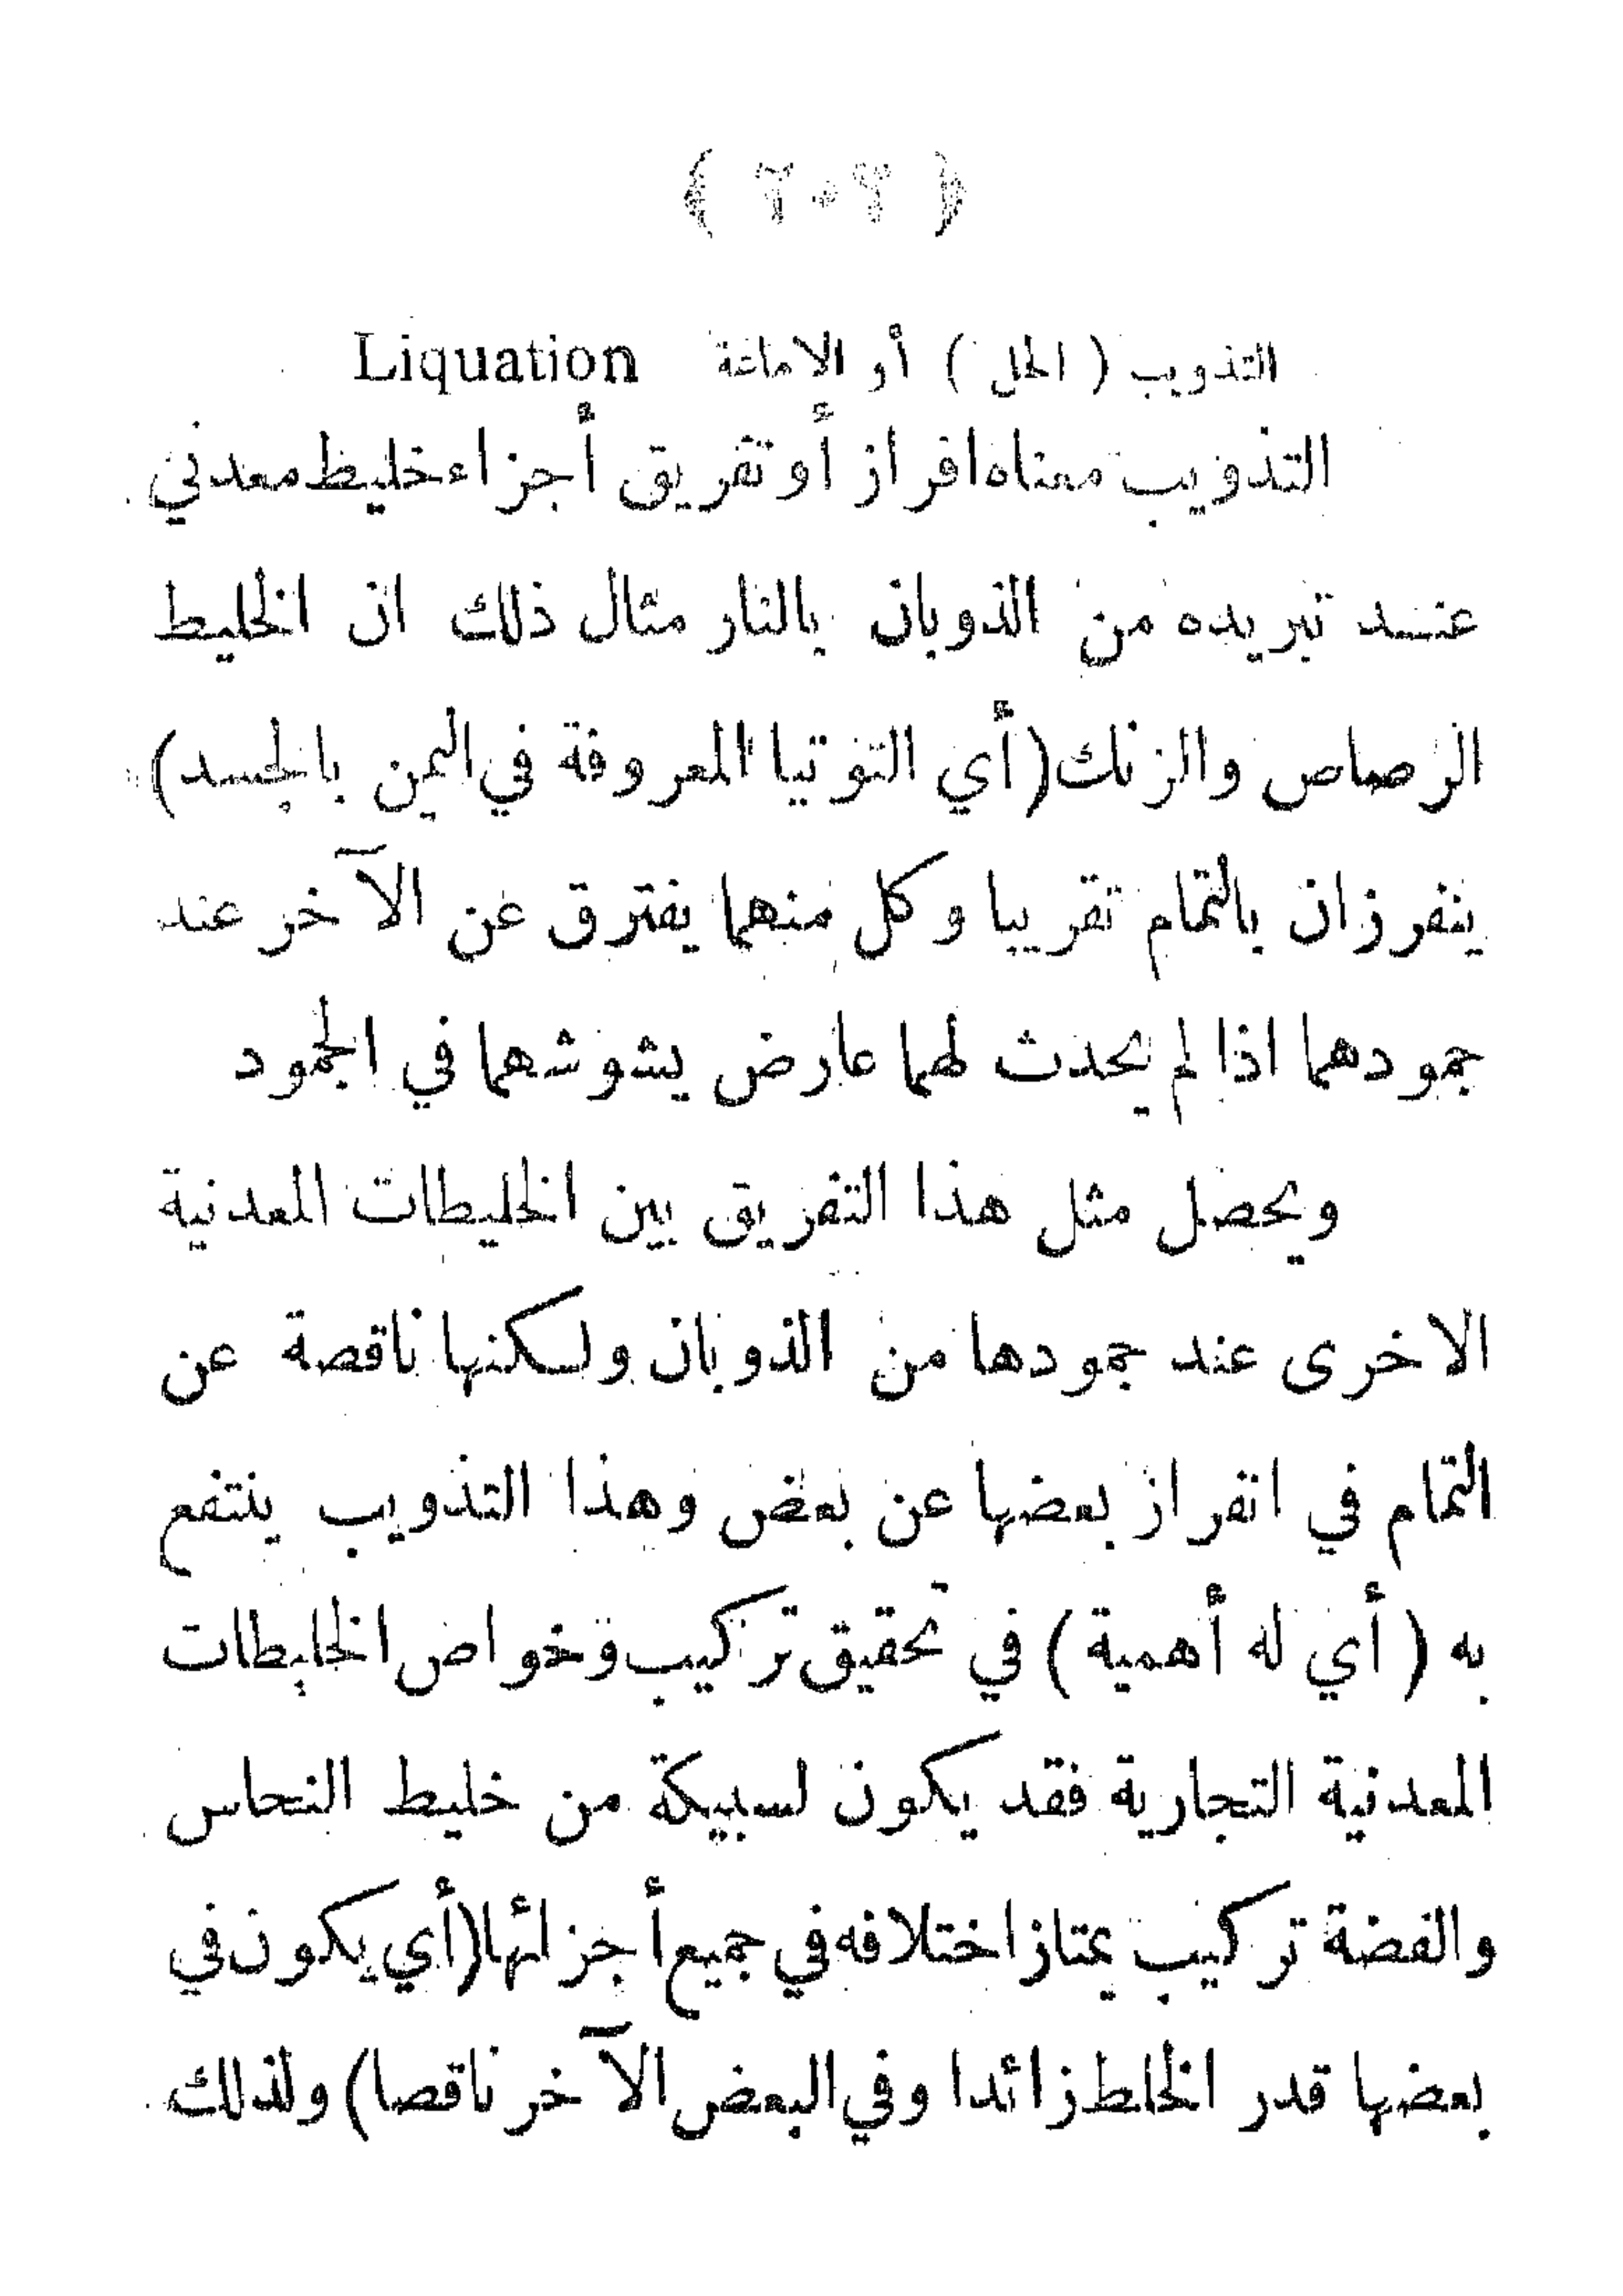 ( ٢٠٢ )
التذويب ( الحل ) أو الاماعة Liquation
التذويب معناه افراز أو تفريق أجزاء خليط معدني
عند تبريده من الذوبان بالنار مثال ذلك ان الخليط
الرصاص والزنك (أي التوتيا المعروفة في اليمن بالجسد)
ينفرزان بالتمام تقريبا وكل منهما يفترق عن الآخر عند
جمودهما اذا لم يحدث لهما عارض يشوشهما في الجمود
ويحصل مثل هذا التفريق بين الخليطات المعدنية
الاخرى عند جمودها من الذوبان ولكنها ناقصة عن
التمام في انفراز بعضها عن بعض وهذا التذويب ينتفع
به ( أي له أهمية ) في تحقيق تركيب وخواص الخليطات
المعدنية التجارية فقد يكون لسبيكة من خليط النحاس
والفضة تركيب يمتاز اختلافه في جميع أجزائها (أي يكون في
بعضها قدر الخلط زائدا وفي البعض الآخر ناقصا) ولذلك